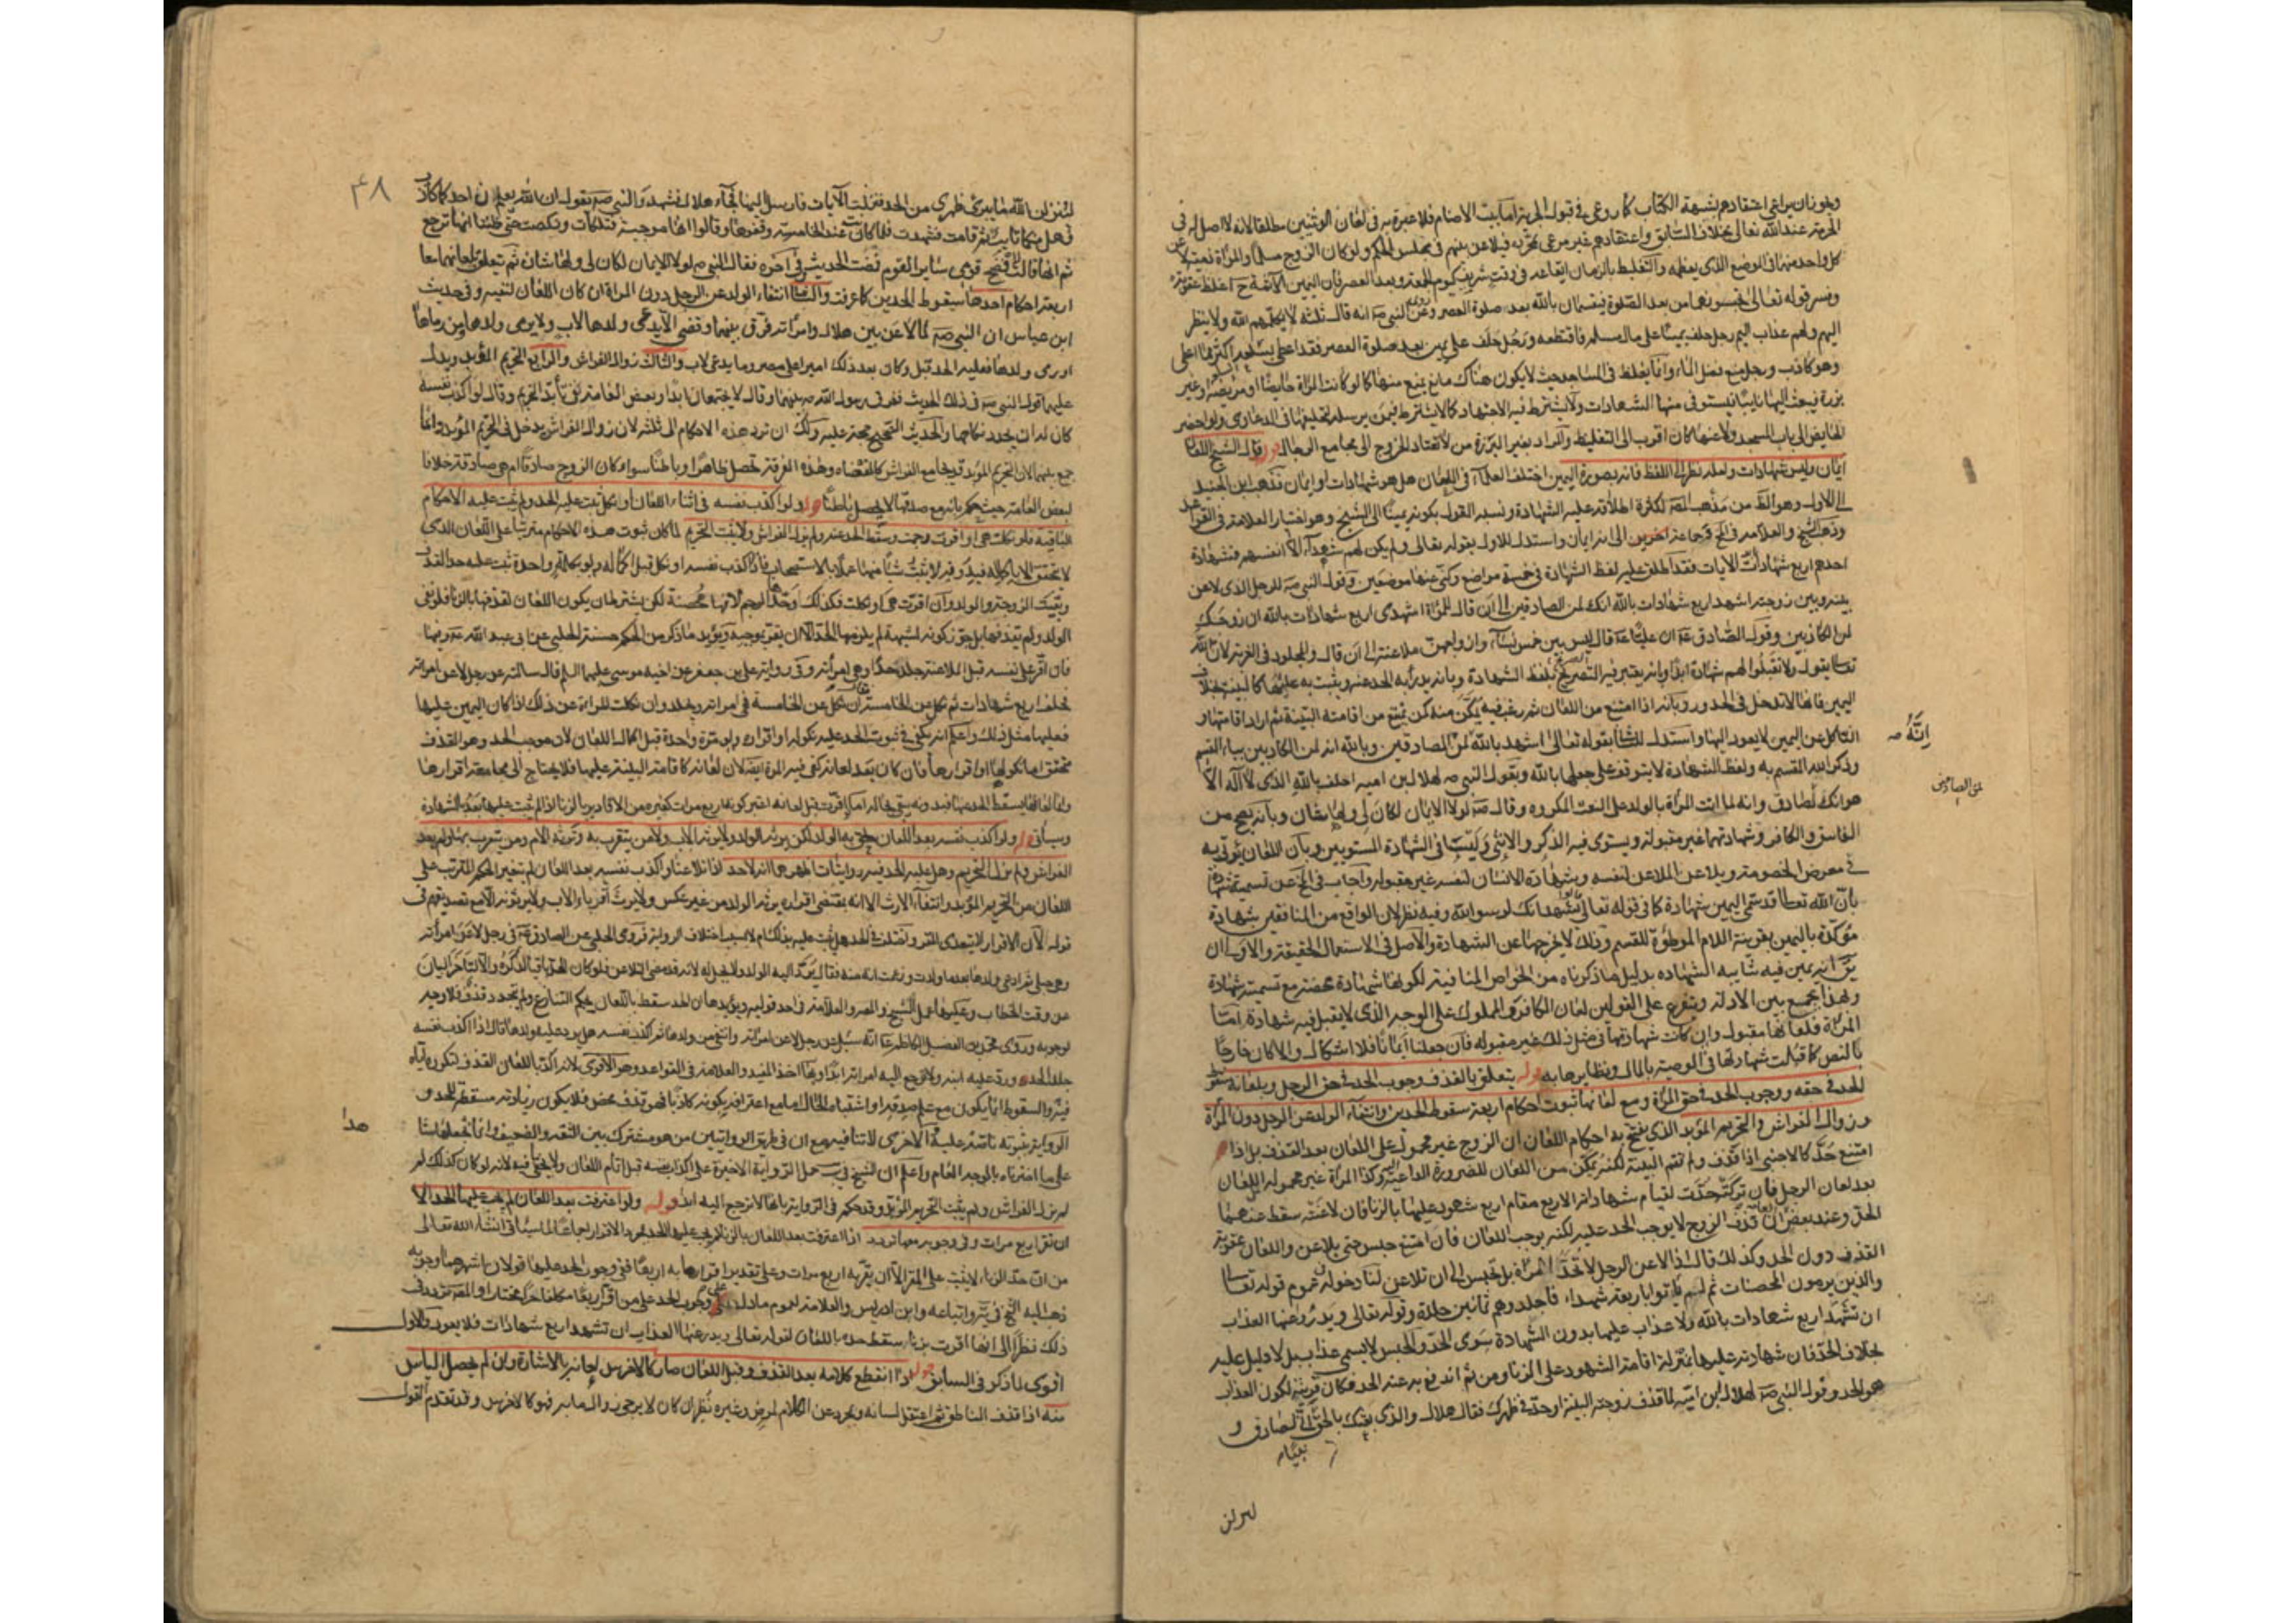 ويجوز ان يراعى اعتقادهم بشبهة الكتاب كما روعى في قبول الجزية اما بيت الاصنام فلا عبرة به في لعان الوثنيين مطلقا لانه لا اصل له في
الحرمة عند الله تعالى بخلاف السابق واعتقادهم غير مرعى فيلاعن بينهم في مجلس الحكم ولو كان الزوج مسلما والمرأة
كل واحد منهما في الموضع الذى يعظمه والتغليظ بالزمان ايقاعه في وقت شريف كيوم الجمعة وبعد العصر فان اليمين اغلظ عقوبة
وفسر قوله تعالى تحبسونهما من بعد الصلوة فيقسمان بالله بعد صلوة العصر وعن النبي صه انه قال ثلثة لا يكلمهم الله ولا ينظر
اليهم ولهم عذاب اليم رجل حلف يمينا على مال مسلم فاقتطعه ورجل حلف على يمين بعد صلوة العصر لقد اعطى بسلعته اكثر مما اعطى
وهو كاذب ورجل منع فضل الماء وانما يغلظ في المساجد حيث لا يكون هناك مانع يمنع منها كما لو كانت المرأة حايضا او مريضة او غير
برزة فيبعث اليها نايبا يستوفى منها الشهادات ولا يشترط فيه الاجتهاد كما لا يشترط فيمن يرسله لتحليفها في الدعاوى ولو احضر
الحايض الى باب المسجد ولاعنها كان اقرب الى التغليظ والمراد بغير البرزة من لا تعتاد الخروج الى مجامع الرجال قوله قال الشيخ اللعان
ايمان وليس شهادات ولعله نظر الى اللفظ فانه بصورة اليمين اختلف العلماء في اللعان هل هو شهادات او ايمان فذهب ابن الجنيد
الى الاول وهو الظ من مذهب المصه لكثرة اطلاقه عليه الشهادة ونسبه القول بكونه يمينا الى الشيخ وهو اختيار العلامة في القواعد
وذهب الشيخ والعلامة في المخ وجماعة اخرين الى انه ايمان واستدل للاول بقوله تعالى ولم يكن لهم شهداء الا انفسهم فشهادة
احدهم اربع شهادات الايات فقد اطلق عليه لفظ الشهادة في خمسة مواضع وكنى عنها موضعين وقول النبي صه للرجل الذى لاعن
بينه وبين زوجته اشهد اربع شهادات بالله انك لمن الصادقين الى ان قال للمرأة اشهدى اربع شهادات بالله ان زوجك
لمن الكاذبين وقول الصادق عه ان عليا عه قال ليس بين خمس نساء وازواجهن ملاعنة الى ان قال والمجلود في الفرية لان الله
تعالى يقول ولا تقبلوا لهم شهادة ابدا وبانه يعتبر فيه التصريح بلفظ الشهادة وبانه يدرأ به الحد عنه ويثبت به عليها كالبينة بخلاف
اليمين فانها لا تدخل في الحدود وبانه اذا امتنع من اللعان ثم رغب فيه يمكن منه كمن يمتنع من اقامة البينة ثم اراد اقامتها و
الناكل عن اليمين لا يعود اليها واستدل للثاني بقوله تعالى اشهد بالله لمن الصادقين وبالله انه لمن الكاذبين بباء القسم
وذكر الله المقسم به ولفظ الشهادة لا يتوقف على جعلها بالله وبقول النبي صه لهلال بن امية احلف بالله الذى لا اله الا
هو انك لصادق وانه لما اتت المرأة بالولد على النعت المكروه وقال صه لولا الايمان لكان لى ولها شان وبانه يصح من
الفاسق والكافر وشهادتهما غير مقبولة ويستوى فيه الذكر والانثى وليستا في الشهادة المستويين وبان اللعان يؤتى به
في معرض الخصومة ويلاعن الملاعن لنفسه وشهادة الانسان لنفسه غير مقبولة واجاب في المخ عن تسميته شهادة
بان الله تعالى قد سمى اليمين شهادة كما في قوله تعالى نشهد انك لرسول الله وفيه نظر لان الواقع من المنافقين شهادة
مؤكدة باليمين بقرينة اللام الموطئة للقسم وذلك لا يخرجها عن الشهادة والاصل في الاستعمال الحقيقة والاولى ان
يق انه يمين فيه شائبة الشهاده بدليل ما ذكرناه من الخواص المنافية لكونها شهادة محضة مع تسميته شهادة
وبهذا يجمع بين الادلة ويتفرع على القولين لعان الكافر والمملوك على الوجه الذى لا يقبل فيه شهادة اما
المرأة فلعانها مقبول وان كانت شهادتها في مثل ذلك غير مقبوله فان جعلنا ايمانا فلا اشكال والا كان خارجا
بالنص كما قبلت شهادتها في الوصية بالمال ونظايرها به قوله يتعلق بالقذف وجوب الحد في حق الرجل وبلعانه سقوط
الحد في حقه ووجوب الحد في حق المرأة ومع لعانهما ثبوت احكام اربعة سقوط الحدين وانتفاء الولد عن الرجل دون المرأة
وزوال الفراش والتحريم المؤبد الذى يفتتح به احكام اللعان ان الزوج غير مجبول على اللعان بعد القذف بل اذا
امتنع حد كالاجنبي اذا قذف ولم تقم البينة لكنه يمكن من اللعان للضرورة الداعية اليه وكذا المرأة غير مجبولة اللعان
بعد لعان الرجل فان تركته حدت لقيام شهاداته الاربع مقام اربع شهود عليها بالزنا فان لاعنته سقط عنهما
الحق وعند بعض العامة قذف الزوج لا يوجب الحد عليه لكنه يوجب اللعان فان امتنع حبس حتى يلاعن واللعان عقوبة
القذف دون الحد وكذلك قال اذا لاعن الرجل لا تحد المرأة بل تحبس الى ان تلاعن لنا دخوله في عموم قوله تعالى
والذين يرمون المحصنات ثم لم ياتوا باربعة شهداء فاجلدوهم ثمانين جلدة وقوله تعالى ويدرؤ عنها العذاب
ان تشهد اربع شهادات بالله ولا عذاب عليها بدون الشهادة سوى الحد والحبس لا يسمى عذاب بل لا دليل عليه
بخلاف الحد فان شهادته عليها بمنزلة اقامة الشهود على الزنا ومن ثم اندفع به عنه الحد فكان قرينة لكون العذاب
هو الحد وقول النبي صه لهلال بن امية لما قذف زوجته البينة او حد في ظهرك فقال هلال والذى بعثك بالحق انى لصادق و
بعثك
لينزلن
انه صه
لمن الصادقين
٤٨
لينزلن الله ما يبرئ ظهرى من الحد فنزلت الآيات فارسل اليهما فجاء هلال فشهد والنبي صه يقول ان الله يعلم ان احدكما كاذب
فهل منكما تايب ثم قامت فشهدت فلما كانت عند الخامسة وقفوها وقالوا انها موجبة فتلكأت ونكصت حتى ظننا انها ترجع
ثم انها قالت لا افضح قومى ساير اليوم فمضت الحديث وفي آخره فقال النبي صه لولا الايمان لكان لى ولها شان ثم تعلق بلعانهما معا
اربعة احكام احدها سقوط الحدين كما عرفت والثانى انتفاء الولد عن الرجل دون المرأة ان كان اللعان لنفيه وفي حديث
ابن عباس ان النبي صه لما لاعن بين هلال وامرأته فرق بينهما وقضى الا يدعى ولدها لاب ولا يرمى ولدها ومن رماها
او رمى ولدها فعليه الحد قيل وكان بعد ذلك اميرا على مصر وما يدعى لاب والثالث زوال الفراش والرابع التحريم المؤبد ويدل
عليهما قول النبي صه في ذلك الحديث ففرق رسول الله صه بينهما وقال لا يجتمعان ابدا وبعض العامة نفى تأبد التحريم وقال لو اكذب نفسه
كان له ان يجدد نكاحها والحديث الصحيح حجة عليه ولك ان ترد هذه الاحكام الى ثلثة لان زوال الفراش يدخل في التحريم المؤبد وانما
جمع بينهما لان التحريم المؤبد قد يجامع الفراش كالمفضاه وهذه الفرقة تحصل ظاهرا وباطنا سواء كان الزوج صادقا ام هى صادقة خلافا
لبعض العامة حيث حكم بانه مع صدقها لا يحصل باطنا قوله ولو اكذب نفسه في اثناء اللعان او نكل ثبت عليه الحد ولم يثبت عليه الاحكام
الباقية فلو نكلت هى او اقرت رجمت وسقط الحد عنه ولم يزل الفراش ولا يثبت التحريم لما كان ثبوت هذه الاحكام مترتبا على اللعان الذى
لا يتحقق الا باكماله ثبت عليه حد القذف
وبقيت الزوجية والولد وان اقرت هى او نكلت فكذلك وحد الرجم لانها محصنة لكن يشترط ان يكون اللعان لقذفها بالزنا فلو نفى
الولد ولم يقذفها بل جوز كونه لشبهة لم يلزمها الحد الا ان يقر بموجبه ويؤيد ما ذكر من الحكم حسنة الحلبي عن ابى عبد الله عه وفيها
فان اقر على نفسه قبل الملاعنة جلد حدا وهى امرأته وفي رواية على بن جعفر عن اخيه موسى عليهما السلم قال سالته عن رجل لاعن امرأته
فحلف اربع شهادات ثم نكل عن الخامسة قال ان نكل عن الخامسة فهى امرأته ويجلد وان نكلت المرأة عن ذلك اذا كان اليمين عليها
فعليها مثل ذلك واعلم انه يكفى في ثبوت الحد عليه نكوله او اقراره ولو مرة واحدة قبل اكمال اللعان لان موجب الحد وهو القذف
متحقق اما نكولها او اقرارها فان كان بعد لعانه كفى فيه المرة ايضا لان لعانه كاقامة البينة عليها فلا يحتاج الى مجامعة اقرارها
وسيأتى قوله ولو اكذب نفسه بعد اللعان لحق به الولد لكن يرثه الولد ولا يرثه الاب ولا من يتقرب به وترثه الام ومن يتقرب بها ولم يعد
الفراش ولم يزل التحريم وهل عليه الحد فيه روايتان اظهرهما انه لا حد اذا تلاعنا واكذب نفسه بعد اللعان لم تتغير الحكم المترتب على
اللعان من التحريم المؤبد وانتفاء الارث الا انه بمقتضى اقراره يرثه الولد من غير عكس ولا يرث اقرباء الاب ولا يرثونه الا مع تصديقهم في
قوله لان الاقرار لا يتعدى المقر واختلف في الحد هل يثبت عليه بذلك ام لا بسبب اختلاف الرواية فروى الحلبي عن الصادق عه في رجل لاعن امرأته
وهى حبلى ثم ادعى ولدها بعد ما ولدت وزعمت انه منه فقال يرد اليه الولد ولا يجلد لانه قد مضى التلاعن فلو كان الحد باقيا لذكره والا لتاخر البيان
عن وقت الخطاب وعليها عمل الشيخ والمصه والعلامة في احد قوليه ويؤيدها ان الحد سقط باللعان بحكم الشارع ولم يتجدد قذف فلا وجه
لوجوبه وروى محمد بن الفضيل عن الكاظم عه انه سئل عن رجل لاعن امرأته وانتفى من ولدها ثم اكذب نفسه هل يرد عليه ولدها قال اذا اكذب نفسه
جلد الحد ورد عليه ابنه ولا ترجع اليه امرأته ابدا وبها اخذ المفيد والعلامة في القواعد وهو الاقوى لانه اكد باللعان القذف لتكرره اياه
فيه والسقوط انما يكون مع علم صدقه او اشتباه الحال اما مع اعترافه بكونه كاذبا فهو قذف محض فلا يكون زيادته مسقطة للحد و
على ما اخترناه بالوجه العام واعلم ان الشيخ في يب حمل الرواية الاخيرة على اكذاب نفسه قبل تمام اللعان ولا يخفى فيه لانه لو كان كذلك لم
يزل الفراش ولم يثبت التحريم المؤبد وقد حكم في الرواية بانها لا ترجع اليه ابدا قوله ولو اعترفت بعد اللعان لم يجب عليها الحد الا
ان تقر اربع مرات وفي وجوبه معها تردد اذا اعترفت بعد اللعان بالزنا لم يجب عليها الحد بمجرد الاقرار اجماعا لما سيأتى ان شاء الله تعالى
من ان حد الزنا لا يثبت على المقر الا ان يقر به اربع مرات وعلى تقدير اقرارها به اربعا ففى وجوب الحد عليها قولان اشهرهما وجوبه
ذهب اليه الشيخ في يه واتباعه وابن ادريس والعلامة لعموم ما دل على وجوب الحد على من اقر اربعا مكلفا حرا مختارا والمصه تردد في
ذلك نظرا الى انها اقرت بزنا سقط حده باللعان لقوله تعالى ويدرء عنها العذاب ان تشهد اربع شهادات فلا يعود والاول
اقوى لما ذكر في السابق قوله اذا انقطع كلامه بعد القذف وقبل اللعان صار كالاخرس لعانه بالاشارة وان لم يحصل الياس
منه اذا قذف الناطق ثم اعتقل لسانه وعجز عن الكلام لمرض وغيره نظر ان كان لا يرجى زوال ما به فهو كالاخرس وقد تقدم القول